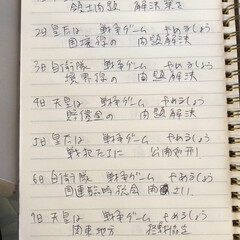 領土問題 解決策を
2日 皇太は 戦争ゲーム やめましょう
国境線の 問題解決
3日 自衛隊 戦争ゲーム やめましょう
境界線の 問題解決
4日 天皇は 戦争ゲーム やめましょう
賠償金の 問題解決
5日 皇太は 戦争ゲーム やめましょう
戦犯たちに 公開処刑
6日 自衛隊 戦争ゲーム やめましょう
国連臨時総会 さい
7日 天皇は 戦争ゲーム やめましょう
関東地方